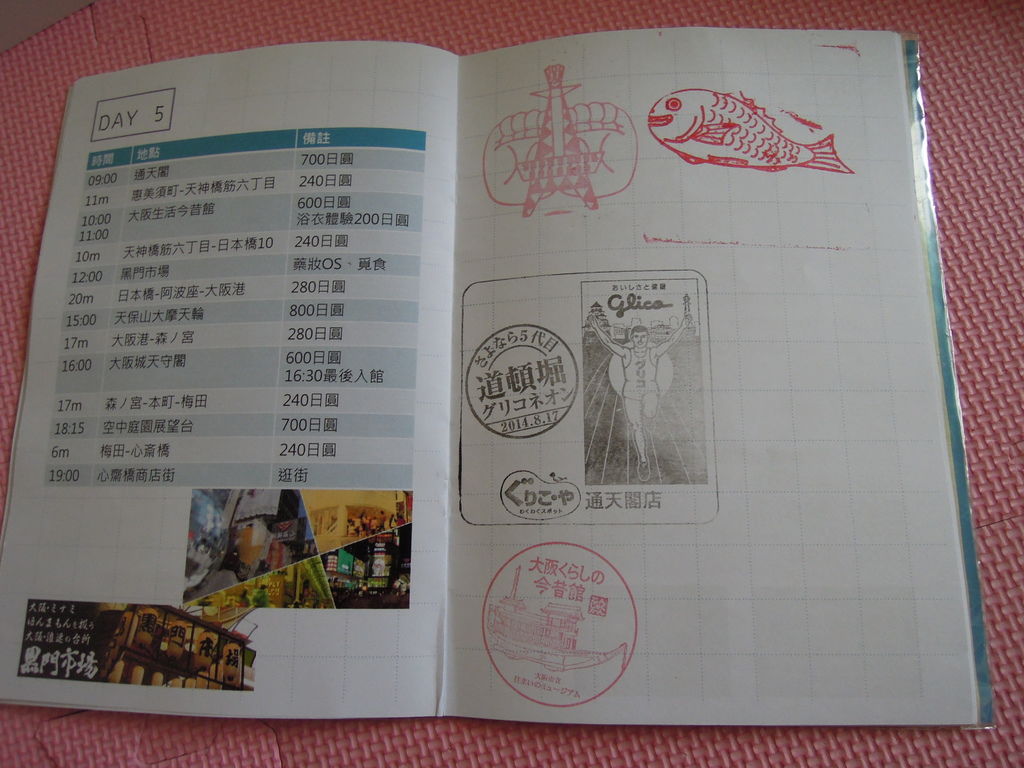 DAY 5
時間 地點 備註
09:00 通天閣 700日圓
11m 惠美須町-天神橋筋六丁目 240日圓
10:00 大阪生活今昔館 600日圓
11:00 浴衣體驗200日圓
10m 天神橋筋六丁目-日本橋10 240日圓
12:00 黑門市場 藥妝OS、覓食
20m 日本橋-阿波座-大阪港 280日圓
15:00 天保山大摩天輪 800日圓
17m 大阪港-森ノ宮 280日圓
16:00 大阪城天守閣 600日圓
16:30最後入館
17m 森ノ宮-本町-梅田 240日圓
18:15 空中庭園展望台 700日圓
6m 梅田-心斎橋 240日圓
19:00 心齋橋商店街 逛街
大阪·ミナミ
ほんまもんを扱う
大阪·浪速の台所
黒門市場
黒門市場
おいしさと健康
Glico
グリコ
さよなら5代目
道頓堀
グリコネオン
2014.8.17
ぐりこ·や
わくわくスポット
通天閣店
大阪くらしの
今昔館
大阪市立
住まいのミュージアム